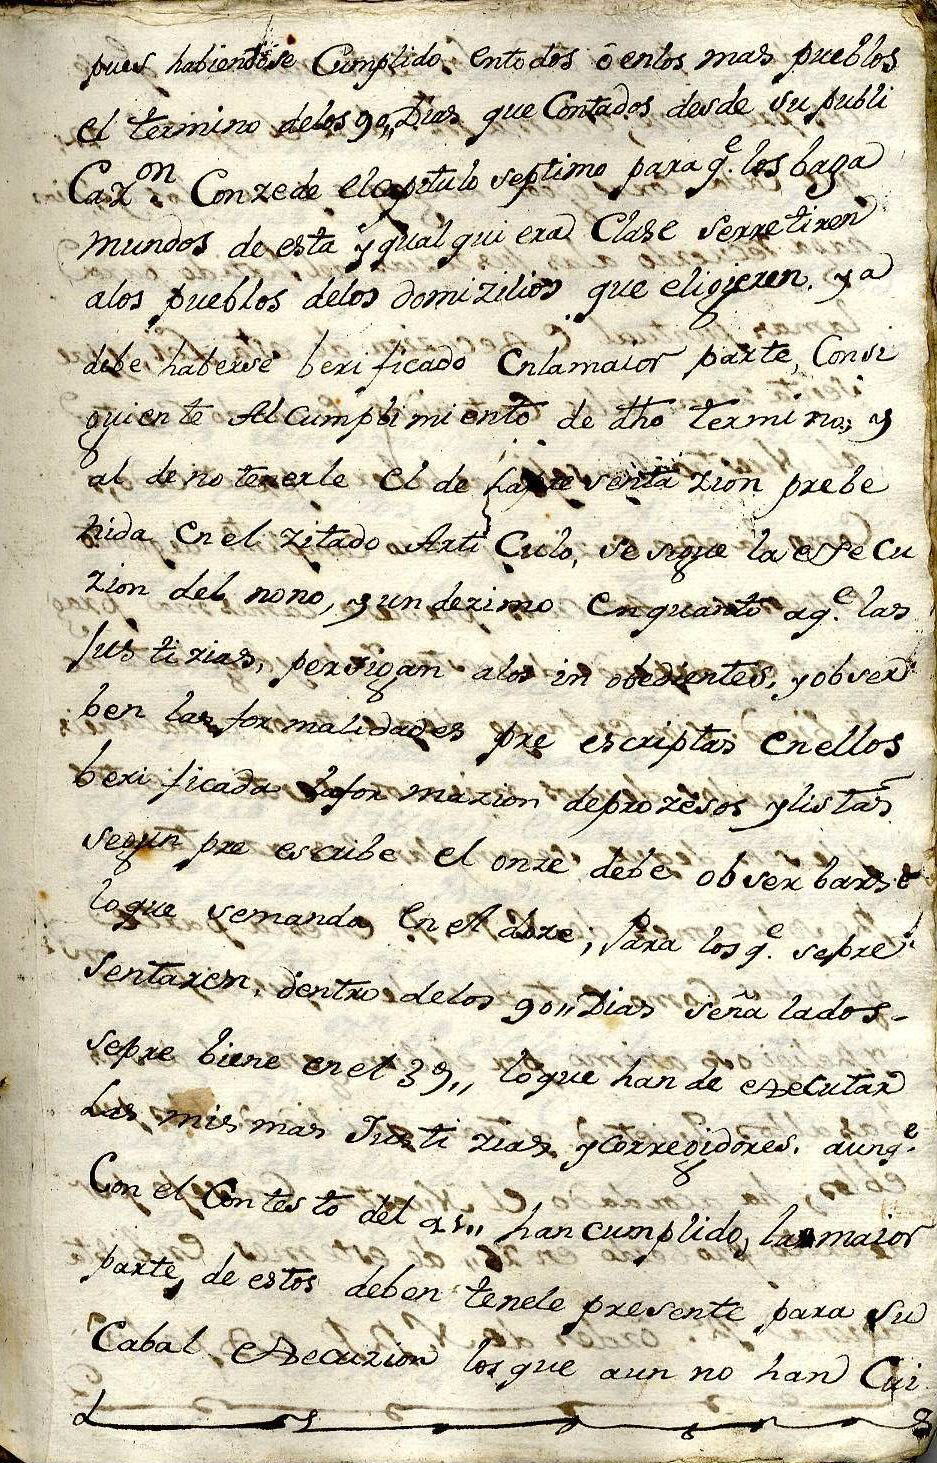 pues habiendose Cumplido entodos ô enlos mas pueblos
el termino delos 90,, Dias que Contados desde su publi
Cazon. Conzede elcapitulo septimo para qe. los baga
mundos de esta y qual qui era Clase serretiren
alos pueblos delos domizilios que eligieren, y a
debe haberse berificado Enlamaior parte, Consi
guiente Al Cumpli miento de dho termino, y
al de no tenerle El de La pre senta zion prebe
nida En el zitado Arti Culo, se sigue la esecu
zion del nono, y un dezimo En quanto aqe. las
Jus ti zias, persigan alos in obedientes, y obser
ben las for malidades pre escriptas En ellos
beri ficada la for mazion deprozesos y listas
segun pre escribe el onze debe obser barse
loque semanda En el doze; Para los qe. sepre
sentaren, dentro delos 90,, Dias seña lados.
sepre biene en el 39,, loque han de executar
Las mis mas Justi zias y corregidores. aunqe.
Con el Contesto del han cumplido, la maior
parte, de estos deben tenele presente para su
Cabal execuzion los que aun no han Cui